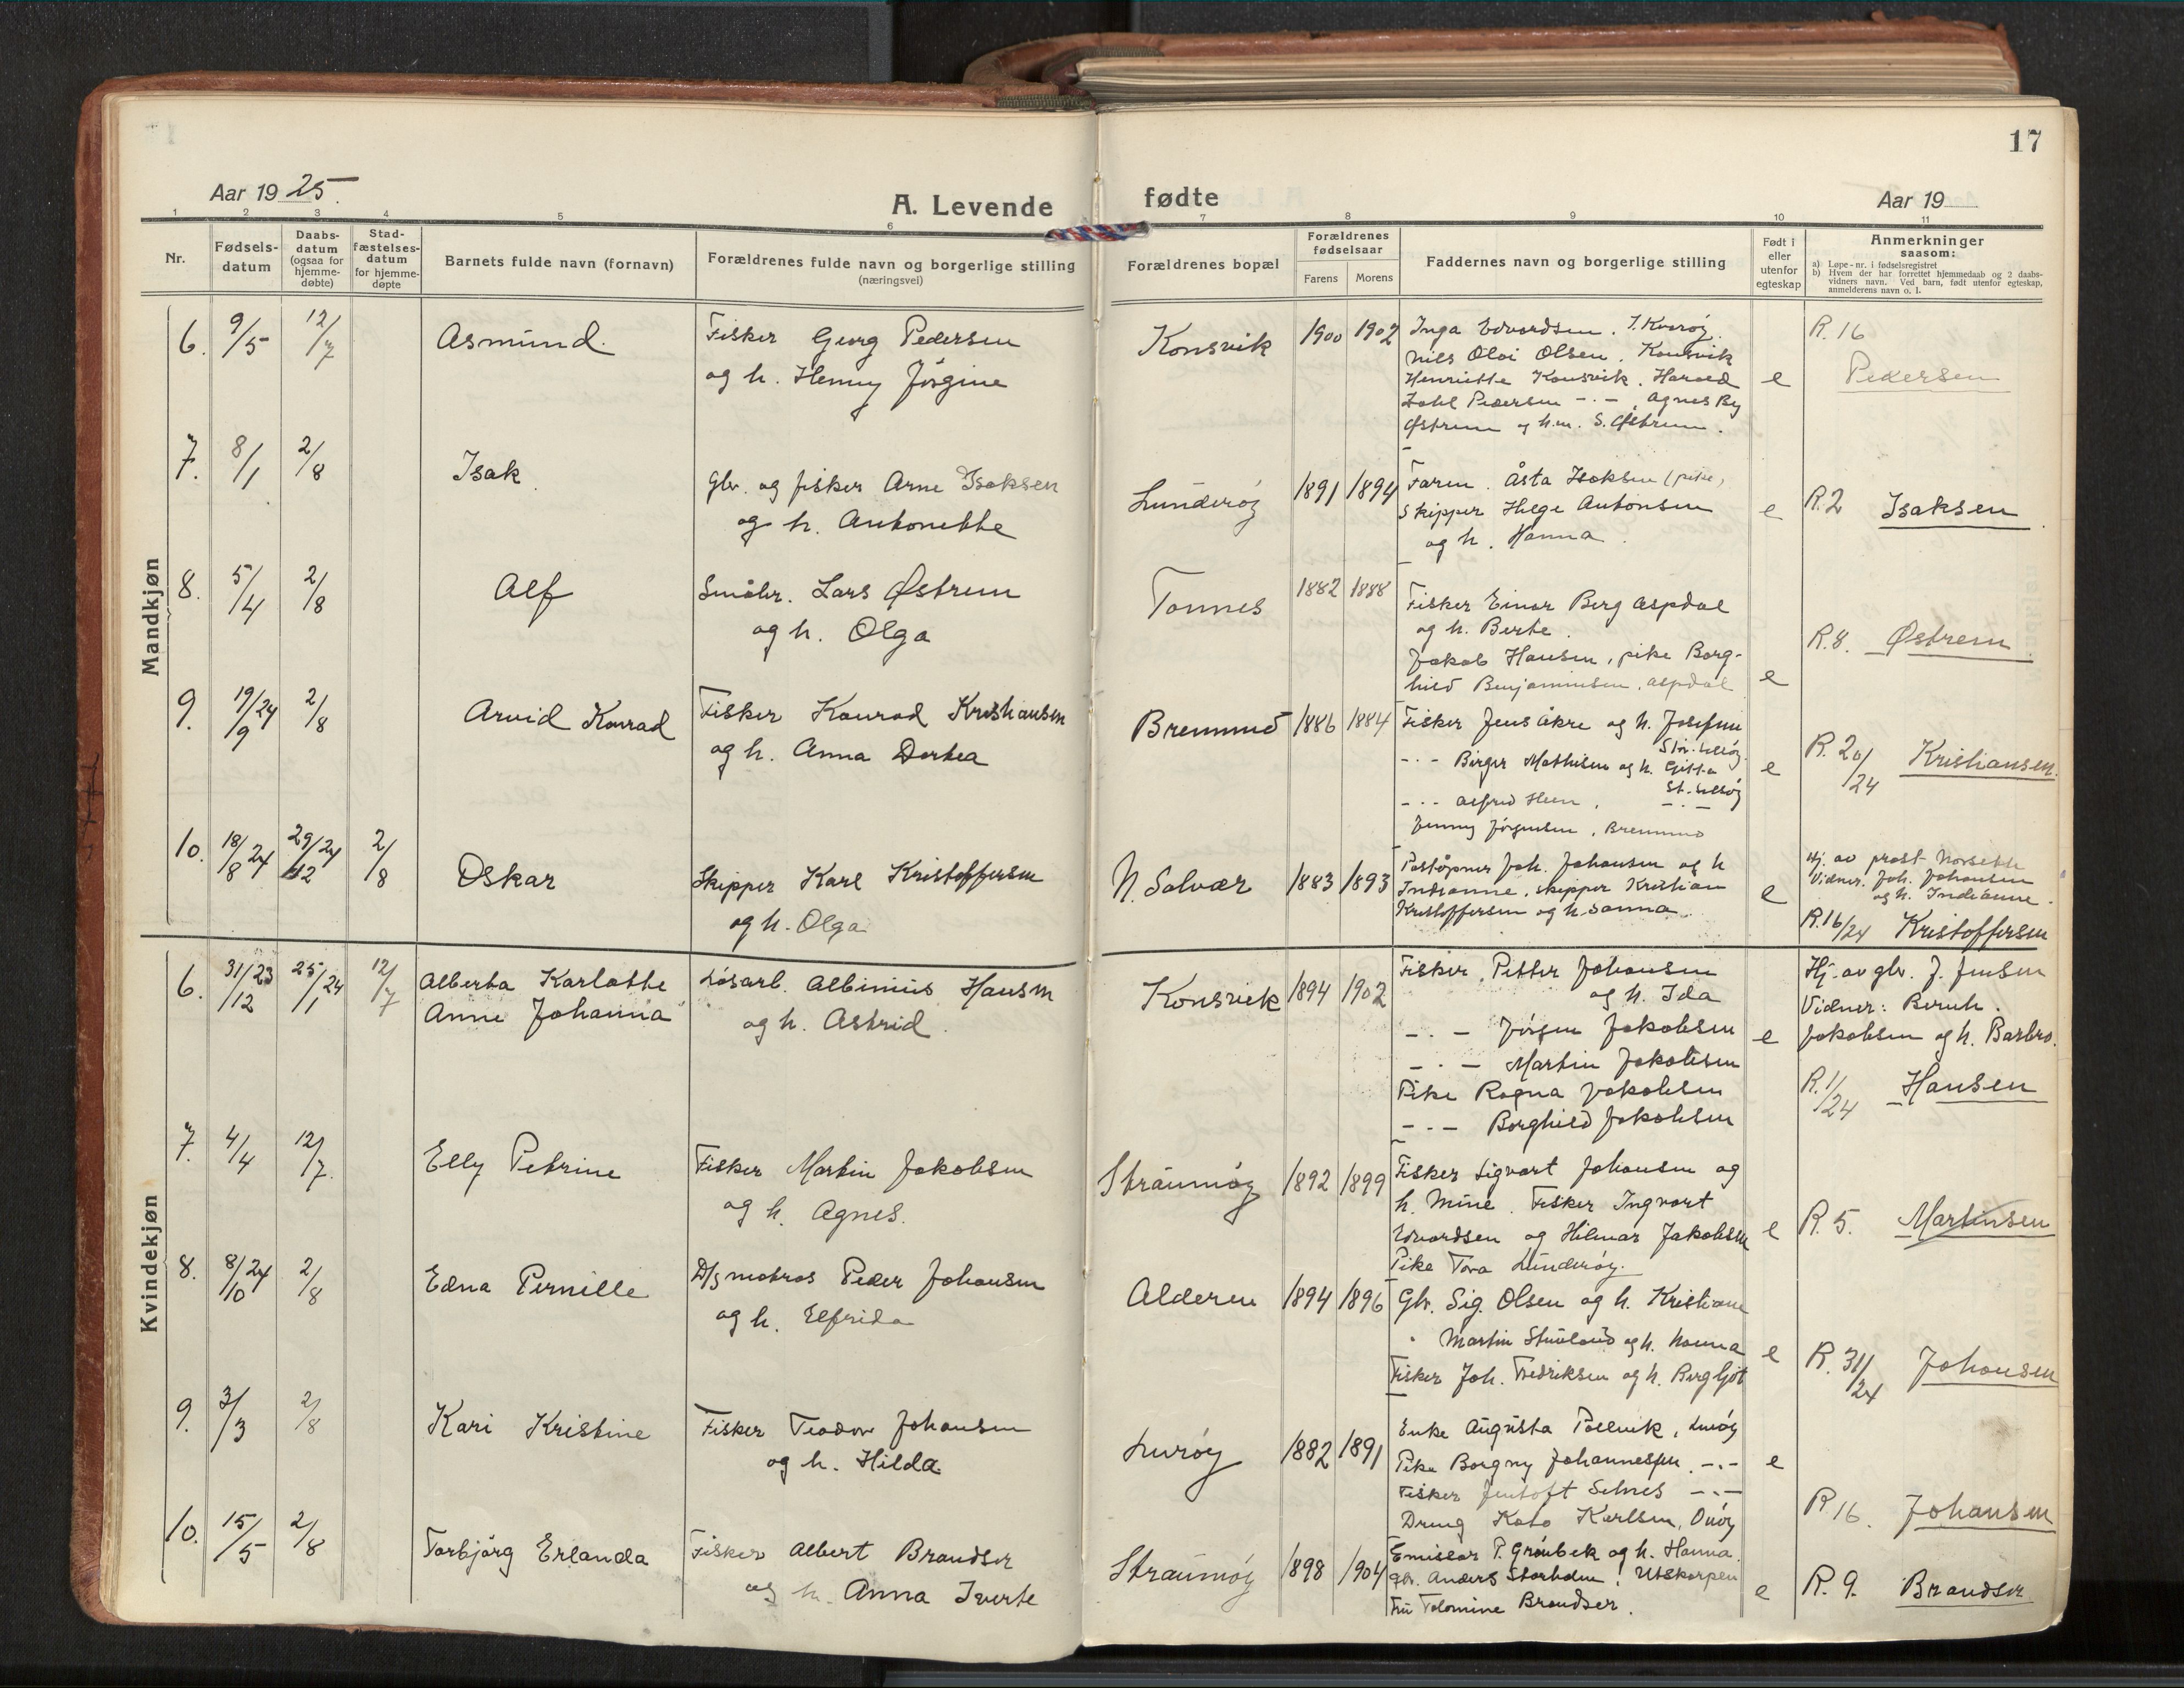 17
Aar 1925.
A. Levende fødte
Aar 19
1 2 3 4 5 6 7 8 9 10 11
Nr.
Fødsels-
datum
Daabs-
datum
(ogsaa for
hjemme-
døbte)
Stad-
fæstelses-
datum
for hjemme-
døpte
Barnets fulde navn (fornavn)
Forældrenes fulde navn og borgerlige stilling
(næringsvei)
Forældrenes bopæl
Forældrenes
fødselsaar
Farens Morens
Faddernes navn og borgerlige stilling
Født i
eller
utenfor
egteskap
Anmerkninger
saasom:
a) Løpe-nr. i fødselsregistret
b) Hvem der har forrettet hjemmedaab og 2 daabs-
vidners navn. Ved barn, født utenfor egteskap,
anmelderens navn o. l.
Mandkjøn
6. 9/5 12/7 Asmund.
Fisker Georg Pedersen
og h. Henny Jørgine
Konsvik 1900 1902
Inga Edvardsen. I. Kvarøy.
Nils Olai Olsen. Konsvik
Henriette Konsvik. Harald
Pedersen -.- Agnes By
Østrem og h.m. S. Østrem.
e
R. 16
Pedersen
7. 8/1 2/8 Isak.
Gbr. og fisker Arne Isaksen
og h. Antonette
Lunderøy 1891 1894
Faren. Åsta Isaksen (pike)
Skipper Helge Antonsen
og h. Hanna.
e
R. 2 Isaksen.
8. 5/4 2/8 Alf
Småbr. Lars Østrem
og h. Olga
Tonnes 1882 1888
Fisker Einar Berg Aspdal
og h. Berte.
Jakob Hansen, pike Borg-
hild Benjaminsen. Aspdal
e
R. 8. Østrem.
9. 19/9 24 2/8 Arvid Konrad
Fisker Konrad Kristiansen
og h. Anna Dortea
Bremmnd 1886 1884
Fisker Jens Åkre og h. Josefine
Str. Selsøy
-.- Birger Mathisen og h. Gitta
St. Selsøy
-.- Alfred Heen, -.-
Jenny Jørgensen, Bremmnd
e
R. 20/24 Kristiansen.
10. 18/8 24 29/12 24 2/8 Oskar
Skipper Karl Kristoffersen
og h. Olga
N. Solvær 1883 1893
Poståpner Joh. Johansen og h
Indianne, skipper Kristian
Kristoffersen og h. Sanna.
e
Hj. av prest Norsette
Vidner. Joh. Johansen
og h. Indianne.
R. 16/24 Kristoffersen
Kvindekjøn
6. 31/12 23 25/1 24 12/7 Alberta Karlotte
Anne Johanna
Løsarb. Albinius Hansen
og h. Astrid.
Konsvik 1894 1902
Fisker Petter Johansen
og h. Ida
-.- Jørgen Jakobsen
-.- Martin Jakobsen
Pike Ragna Jakobsen
-.- Borghild Jakobsen
e
Hj. av gbr. J. Jensen
Vidner: Bernh.
Jakobsen og h. Barbro.
R. 1/24 Hansen
7. 4/4 12/7. Elly Petrine
Fisker Martin Jakobsen
og h. Agnes.
Straumøy 1892 1899
Fisker Sigvart Johansen og
h. Mine. Fisker Ingvart
Edvardsen og Hilmar Jakobsen
Pike Tora Lunderøy.
e
R. 5. Martinsen
8. 8/10 24 2/8 Edna Pernille
D/s matros Peder Johansen
og h. Elfrida
Alderen 1894 1896
Gbr. Sig. Olsen og h. Kristiane
" Martin Stuvland og h. Nanna
Fisker Joh. Fredriksen og h. Bergljot
e
R. 31/24 Johansen
9. 3/3 2/8 Kari Kristine
Fisker Teodor Johansen
og h. Hilda
Lurøy 1882 1891
Enke Augusta Pollvik, Lurøy
Pike Borgny Johannessen -.-
Fisker Jentoft Selnes -.-
Dreng Kato Karlsen, Onøy
e
R 16. Johansen
10. 15/5 2/8 Torbjørg Erlanda
Fisker Albert Brandser
og h. Anna Iverte
Straumøy 1898 1904
Emissær P. Grønbek og h. Hanna.
gbr. Anders Storholm, Utskarpen
Fru Tolomine Brandser.
e
R. 9. Brandser